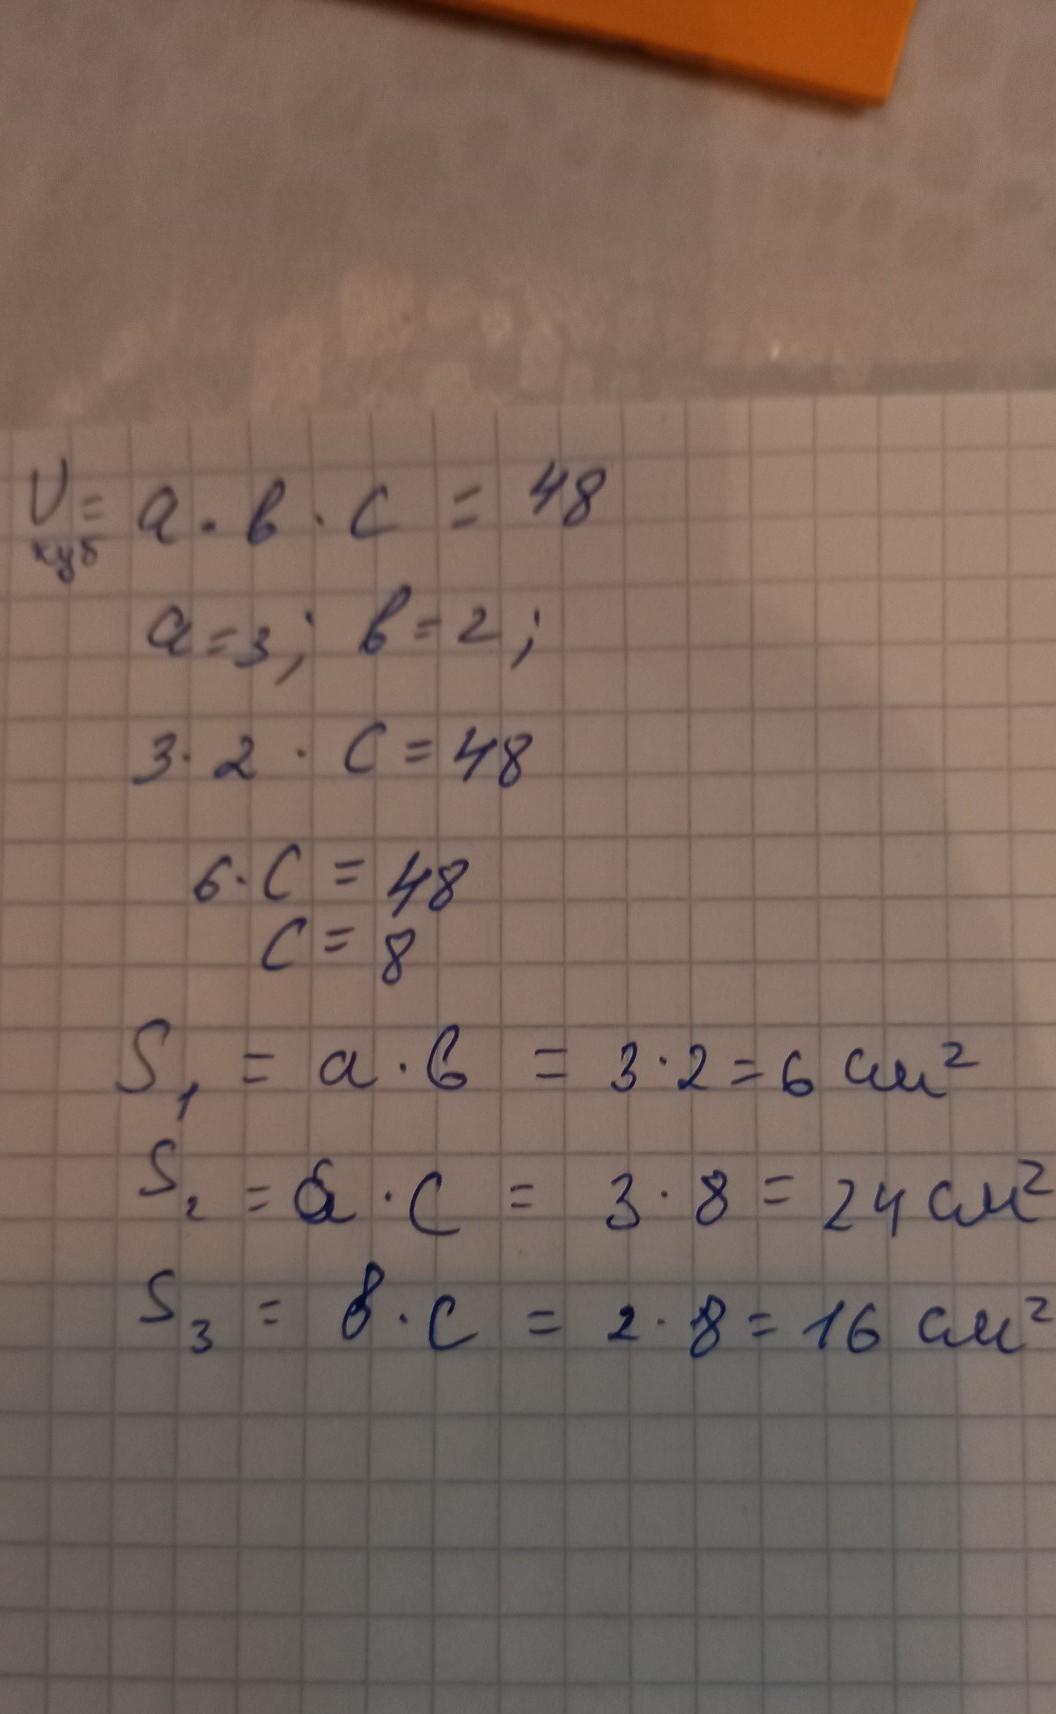 V = a · в · c = 48
куб
a = 3; в = 2;
3 · 2 · c = 48
6 · c = 48
c = 8
S₁ = a · в = 3 · 2 = 6 см²
S₂ = a · c = 3 · 8 = 24 см²
S₃ = в · c = 2 · 8 = 16 см²